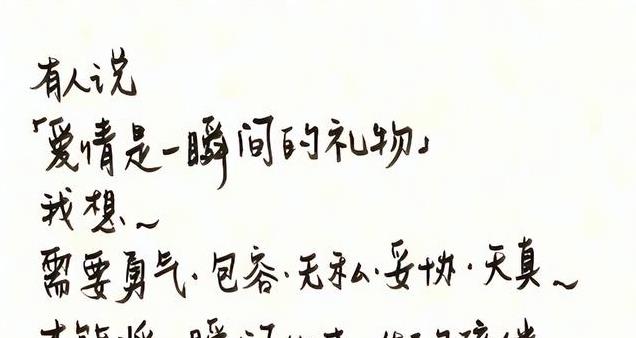 有人说
「爱情是一瞬间的礼物」
我想~
需要勇气·包容·无私·妥协·天真~
才能将一瞬间